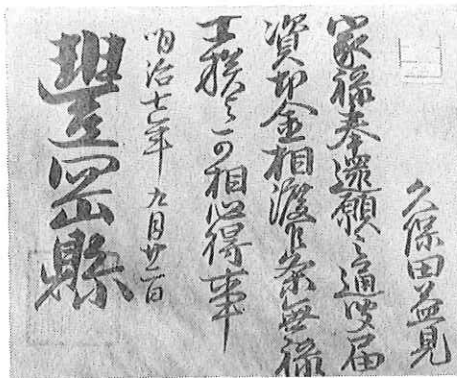 久保田益見
家禄奉還願之通聞届
資本金相渡候条無禄
士族と可相心得事
明治七年九月廿二日
豐岡縣